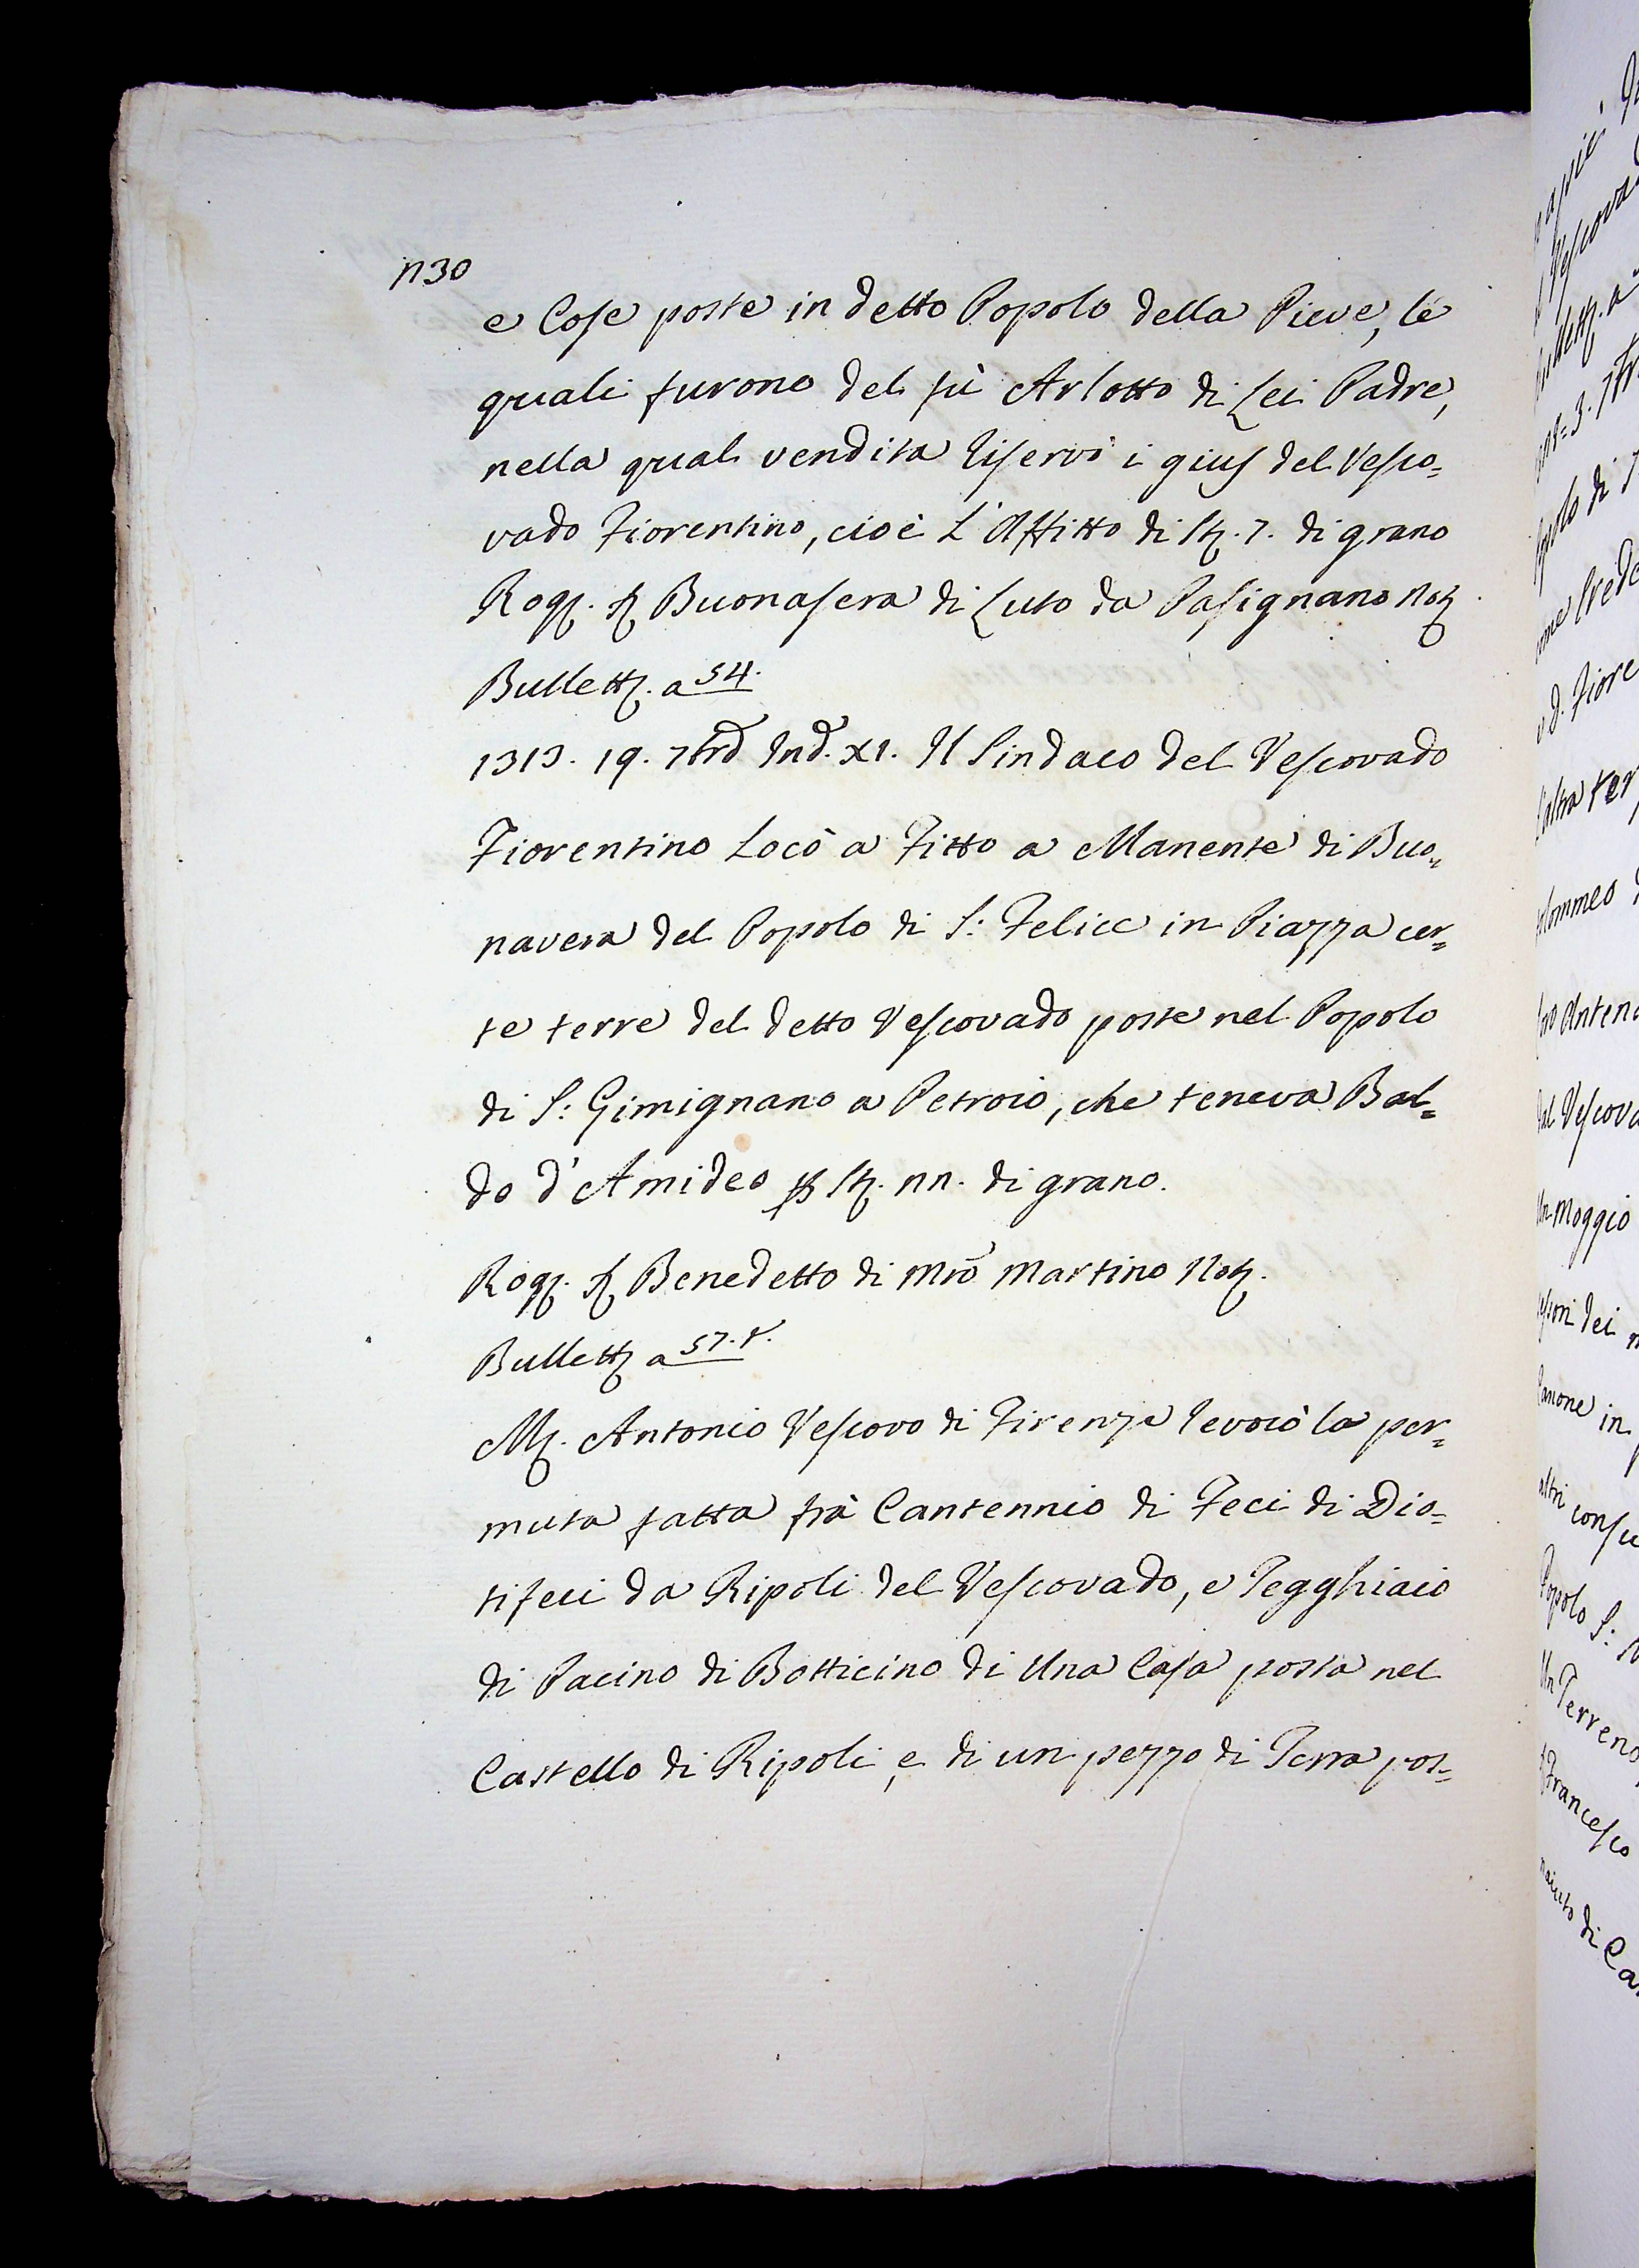 1130
e Cose poste in detto Popolo della Pieve, le
quali furono del fù Arlotto di Lei Padre,
nella qual vendita riservò i gius del Vesco=
vado Fiorentino, cioè L'Affitto di St. 7. di grano
Rog. S. Buonasera di Luto da Pasignano Not.
Bullett. a 54.
1313. 19. 7bre Ind. XI. Il Sindaco del Vescovado
Fiorentino Locò a Fitto a Manente di Buo=
navera del Popolo di S: Felice in Piazza cer=
te terre del detto Vescovado poste nel Popolo
di S: Gimignano a Petroio, che teneva Bal=
do d'Amideo p St. 11. di grano.
Rog. S. Benedetto di Mro Martino Not.
Bullett. a 57. t.
M. Antonio Vescovo di Firenze revocò la per=
muta fatta frà Cantennio di Feci di Dio=
tifeci da Ripoli del Vescovado, e Tegghiaio
di Pacino di Botticino di Una Casa posta nel
Castello di Ripoli, e di un pezzo di Terra pos=
Vescova
3.
di
Fiore
l'altra
Anten
Vescova
Un Moggio
dei
Canone in
altri consu
Popolo S:
Un Terreno
Francesco
di Ca